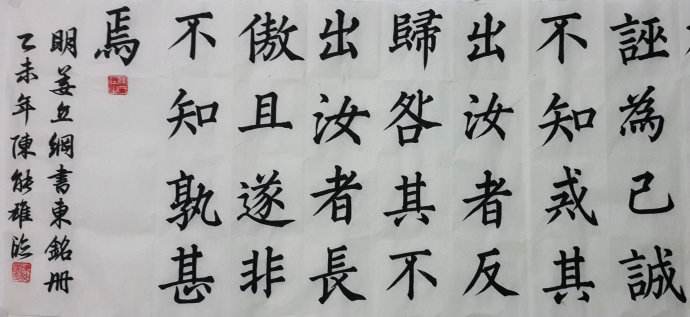 誣為己誠
不知戒其
出汝者反
歸咎其不
出汝者長
傲且遂非
不知孰甚
焉
明姜立綱書東銘冊
乙未年陳能雄臨